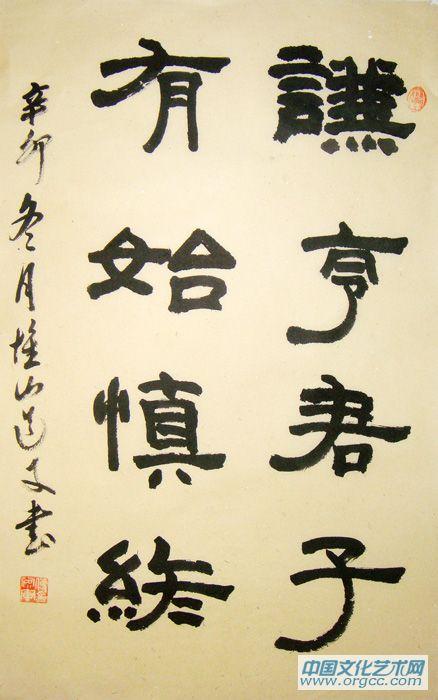 謙亨君子
有始慎終
辛卯冬月山道文書
中国文化艺术网
www.orgcc.com